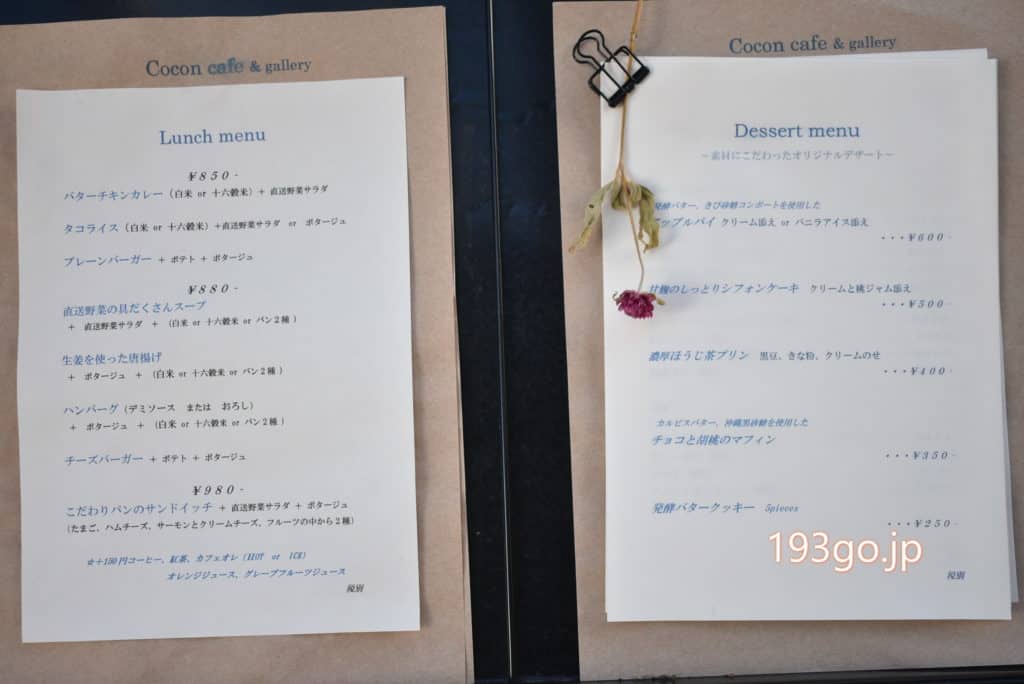 Cocon cafe & gallery
Lunch menu
¥850-
バターチキンカレー（白米 or 十六穀米）＋ 直送野菜サラダ
タコライス（白米 or 十六穀米）＋直送野菜サラダ or ポタージュ
プレーンバーガー ＋ ポテト ＋ ポタージュ
¥880-
直送野菜の具だくさんスープ
＋ 直送野菜サラダ ＋ （白米 or 十六穀米 or パン２種 ）
生姜を使った唐揚げ
＋ ポタージュ ＋ （白米 or 十六穀米 or パン２種 ）
ハンバーグ（デミソース または おろし）
＋ ポタージュ ＋ （白米 or 十六穀米 or パン２種 ）
チーズバーガー ＋ ポテト ＋ ポタージュ
¥980-
こだわりパンのサンドイッチ ＋ 直送野菜サラダ ＋ ポタージュ
（たまご、ハムチーズ、サーモンとクリームチーズ、フルーツの中から２種）
☆＋150円コーヒー、紅茶、カフェオレ（HOT or ICE）
オレンジジュース、グレープフルーツジュース
税別
Cocon cafe & gallery
Dessert menu
～素材にこだわったオリジナルデザート～
発酵バター、きび砂糖コンポートを使用した
アップルパイ クリーム添え or バニラアイス添え
・・・¥600-
甘麹のしっとりシフォンケーキ クリームと桃ジャム添え
・・・¥500-
濃厚ほうじ茶プリン 黒豆、きな粉、クリームのせ
・・・¥400-
カルピスバター、沖縄黒砂糖を使用した
チョコと胡桃のマフィン
・・・¥350-
発酵バタークッキー 5pieces
・・・¥250-
193go.jp
税別